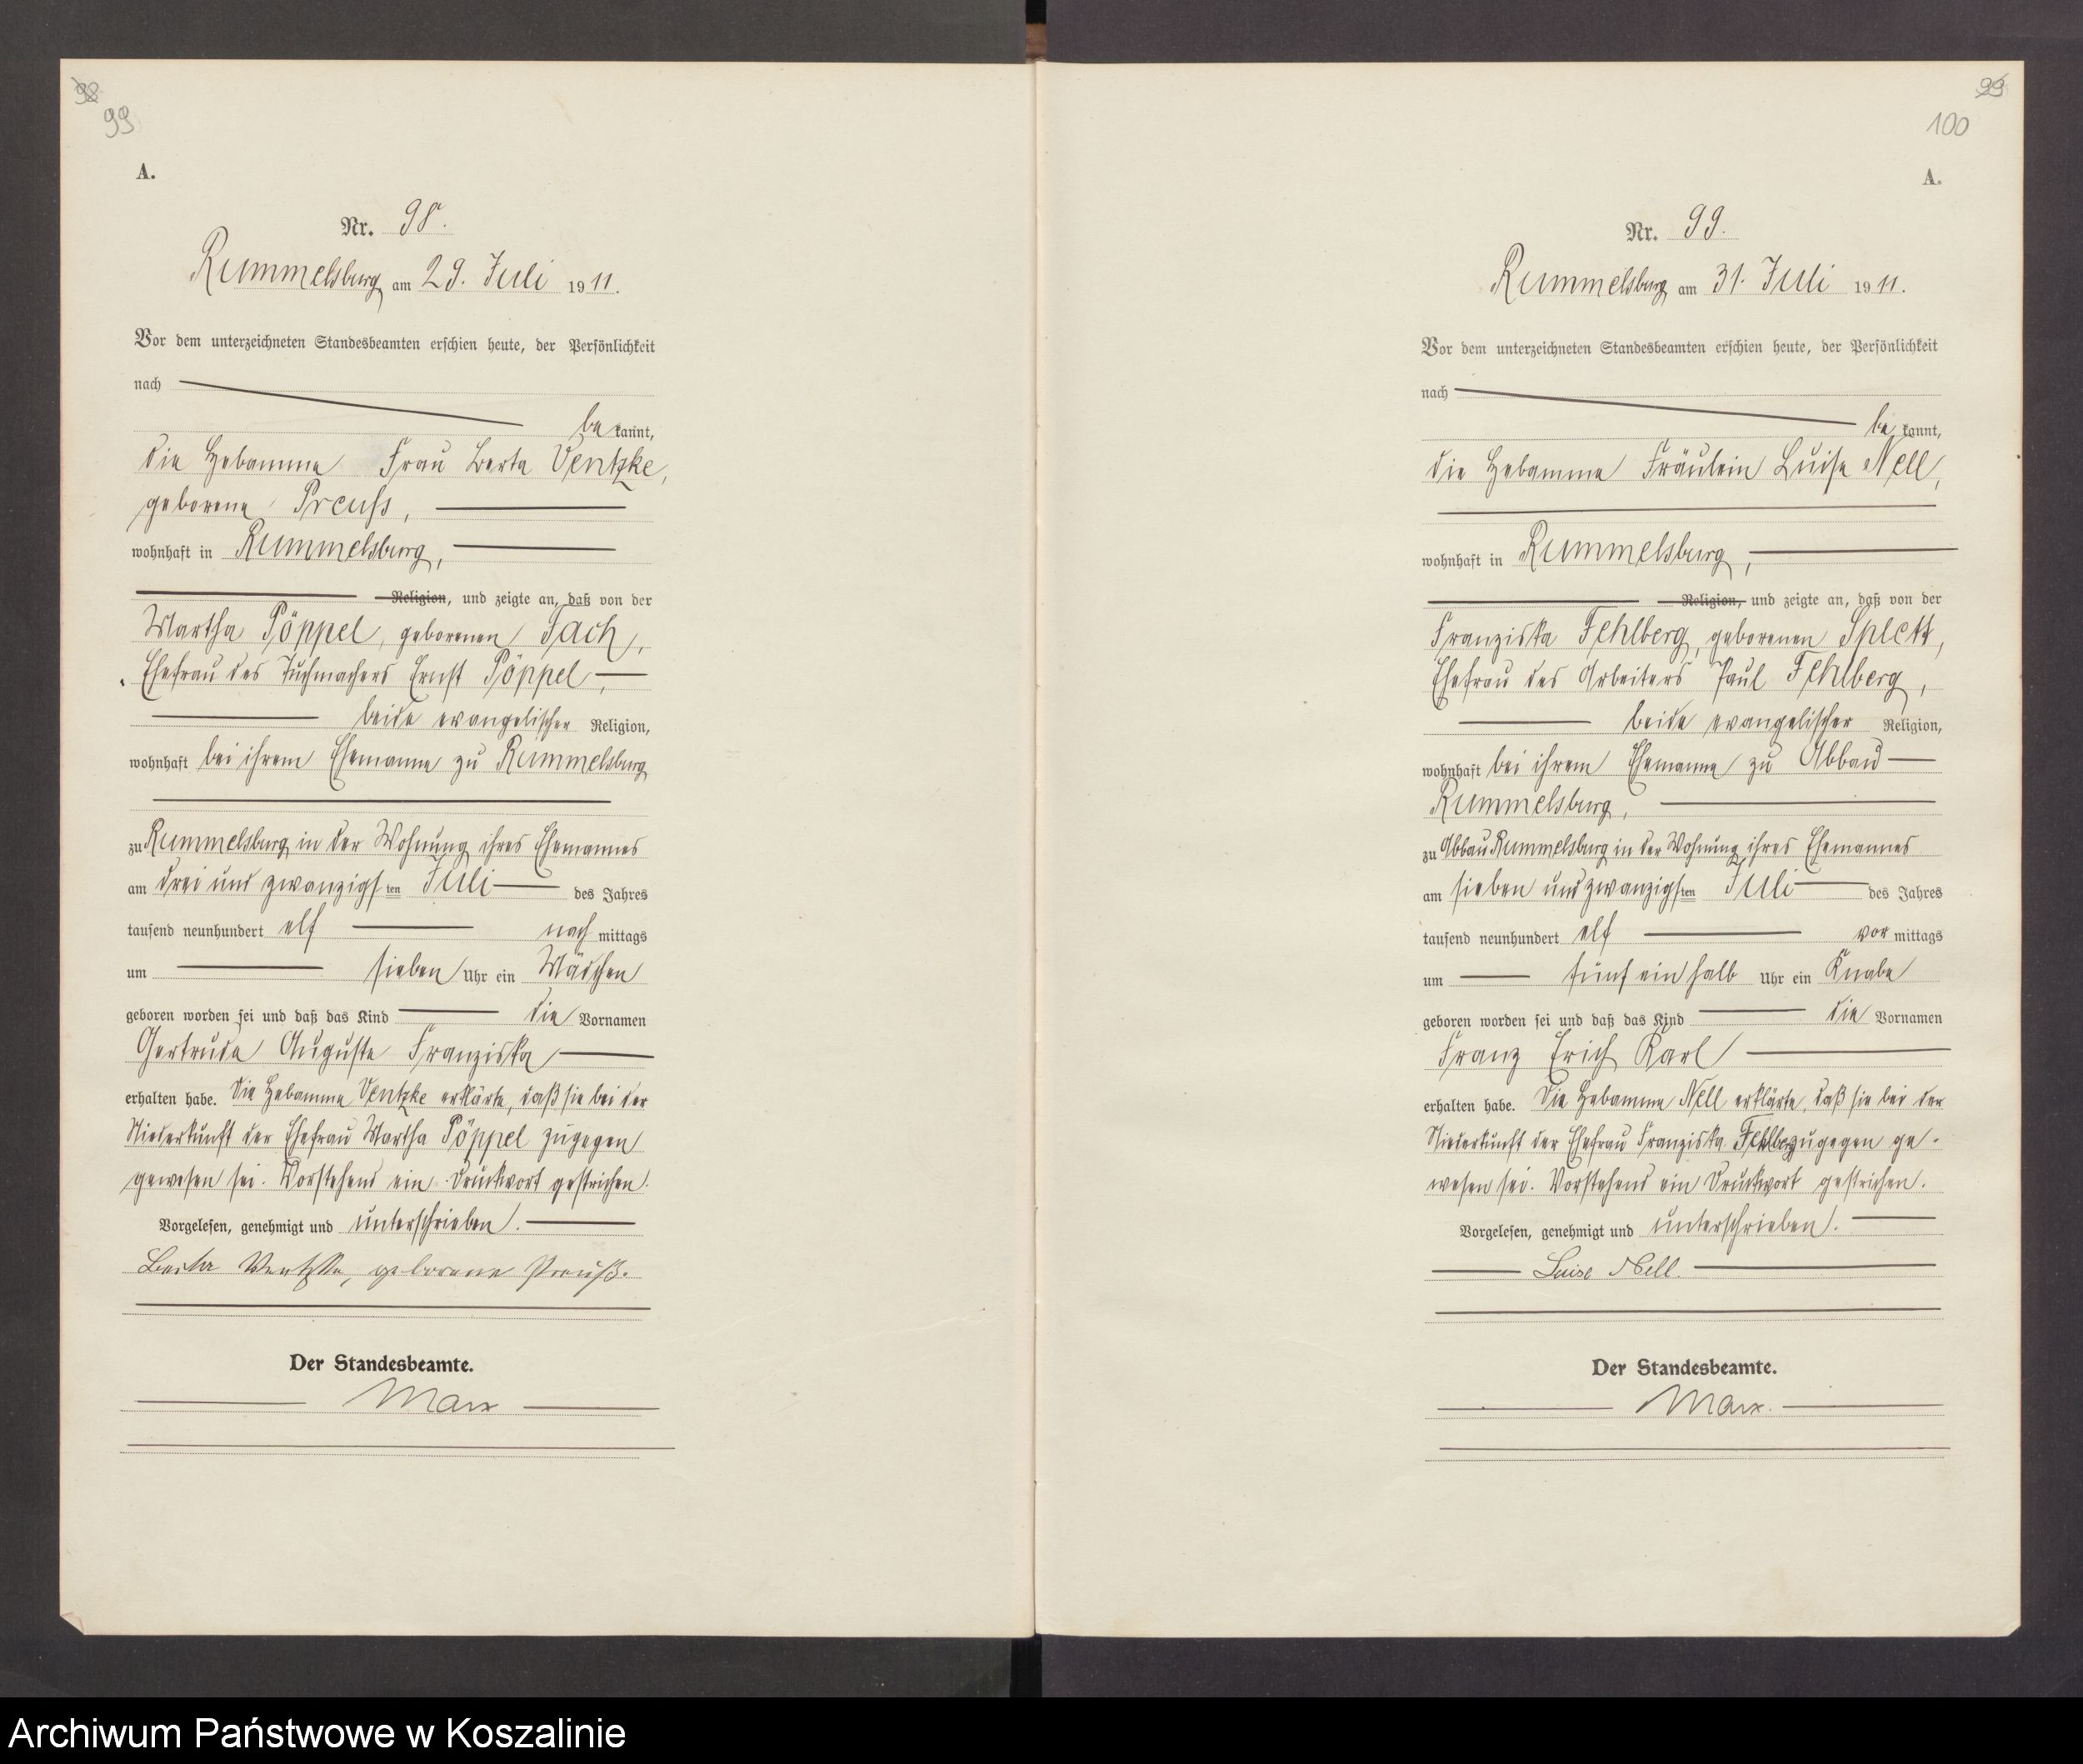 98
99
A.
Nr. 98.
Rummelsburg am 29. Juli 1911.
Vor dem unterzeichneten Standesbeamten erschien heute, der Persönlichkeit
nach
bekannt,
die Hebamme Frau Berta Ventzke,
geborene Preuss,
wohnhaft in Rummelsburg,
Religion, und zeigte an, daß von der
Martha Pöppel, geborenen Jach,
Ehefrau des Tuchmachers Ernst Pöppel,
beide evangelischer Religion,
wohnhaft bei ihrem Ehemanne zu Rummelsburg
zu Rummelsburg in der Wohnung ihres Ehemannes
am drei und zwanzigsten Juli des Jahres
tausend neunhundert elf nachmittags
um sieben Uhr ein Mädchen
geboren worden sei und daß das Kind die Vornamen
Gertrude Auguste Franziska
erhalten habe. Die Hebamme Ventzke erklärte, daß sie bei der
Niederkunft der Ehefrau Martha Pöppel zugegen
gewesen sei. Vorstehend ein Druckwort gestrichen.
Vorgelesen, genehmigt und unterschrieben.
Berta Ventzke, geborene Preuß.
Der Standesbeamte.
Marx
99
100
A.
Nr. 99.
Rummelsburg am 31. Juli 1911.
Vor dem unterzeichneten Standesbeamten erschien heute, der Persönlichkeit
nach
bekannt,
die Hebamme Fräulein Luise Nell,
wohnhaft in Rummelsburg,
Religion, und zeigte an, daß von der
Franziska Fehlberg, geborenen Splett,
Ehefrau des Arbeiters Paul Fehlberg,
beide evangelischer Religion,
wohnhaft bei ihrem Ehemanne zu Abbau
Rummelsburg,
zu Abbau Rummelsburg in der Wohnung ihres Ehemannes
am sieben und zwanzigsten Juli des Jahres
tausend neunhundert elf vormittags
um fünf ein halb Uhr ein Knabe
geboren worden sei und daß das Kind die Vornamen
Franz Erich Karl
erhalten habe. Die Hebamme Nell erklärte, daß sie bei der
Niederkunft der Ehefrau Franziska Fehlberg zugegen ge-
wesen sei. Vorstehend ein Druckwort gestrichen.
Vorgelesen, genehmigt und unterschrieben.
Luise Nell.
Der Standesbeamte.
Marx.
Archiwum Państwowe w Koszalinie